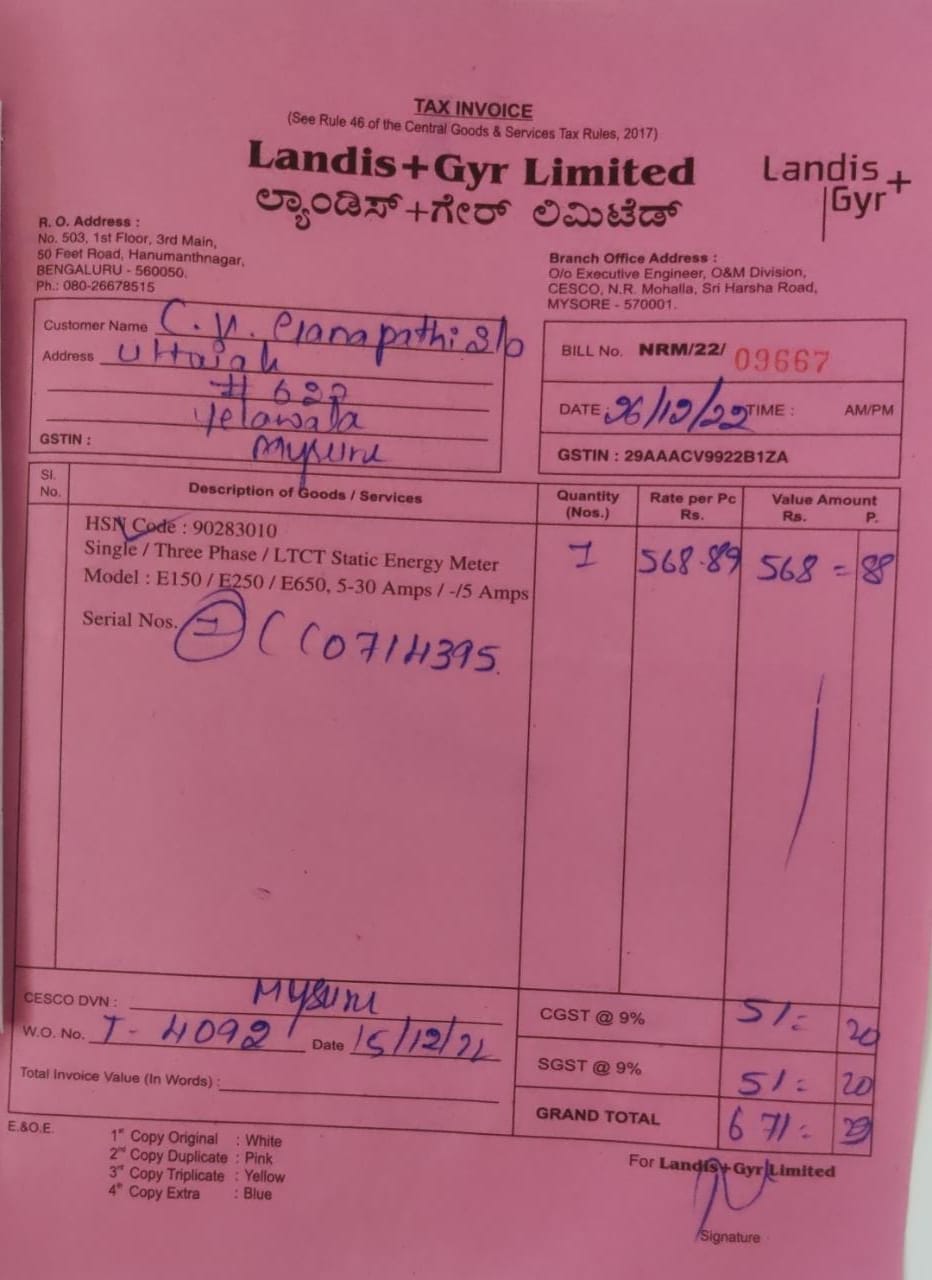 TAX INVOICE
(See Rule 46 of the Central Goods & Services Tax Rules, 2017)
Landis+Gyr Limited
ಲ್ಯಾಂಡಿಸ್+ಗೇರ್ ಲಿಮಿಟೆಡ್
Landis+
Gyr
R. O. Address :
No. 503, 1st Floor, 3rd Main,
50 Feet Road, Hanumanthnagar,
BENGALURU - 560050.
Ph.: 080-26678515
Branch Office Address :
O/o Executive Engineer, O&M Division,
CESCO, N.R. Mohalla, Sri Harsha Road,
MYSORE - 570001.
Customer Name C. Ganapathi S/o
Address Uttaiah
Yelawala
GSTIN : Mysuru
BILL No. NRM/22/ 09667
DATE : 26/12/22 TIME : AM/PM
GSTIN : 29AAACV9922B1ZA
Sl. No. Description of Goods / Services Quantity (Nos.) Rate per Pc Rs. Value Amount Rs. P.
HSN Code : 90283010
Single / Three Phase / LTCT Static Energy Meter 1 568.89 568 = 88
Model : E150 / E250 / E650, 5-30 Amps / -/5 Amps
Serial Nos. 0714395
CESCO DVN : Mysuru
W.O. No. T- 4092 Date 15/12/22
Total Invoice Value (In Words) :
CGST @ 9% 51= 20
SGST @ 9% 51= 20
GRAND TOTAL 671=
E.&O.E.
1st Copy Original : White
2nd Copy Duplicate : Pink
3rd Copy Triplicate : Yellow
4th Copy Extra : Blue
For Landis+Gyr Limited
Signature